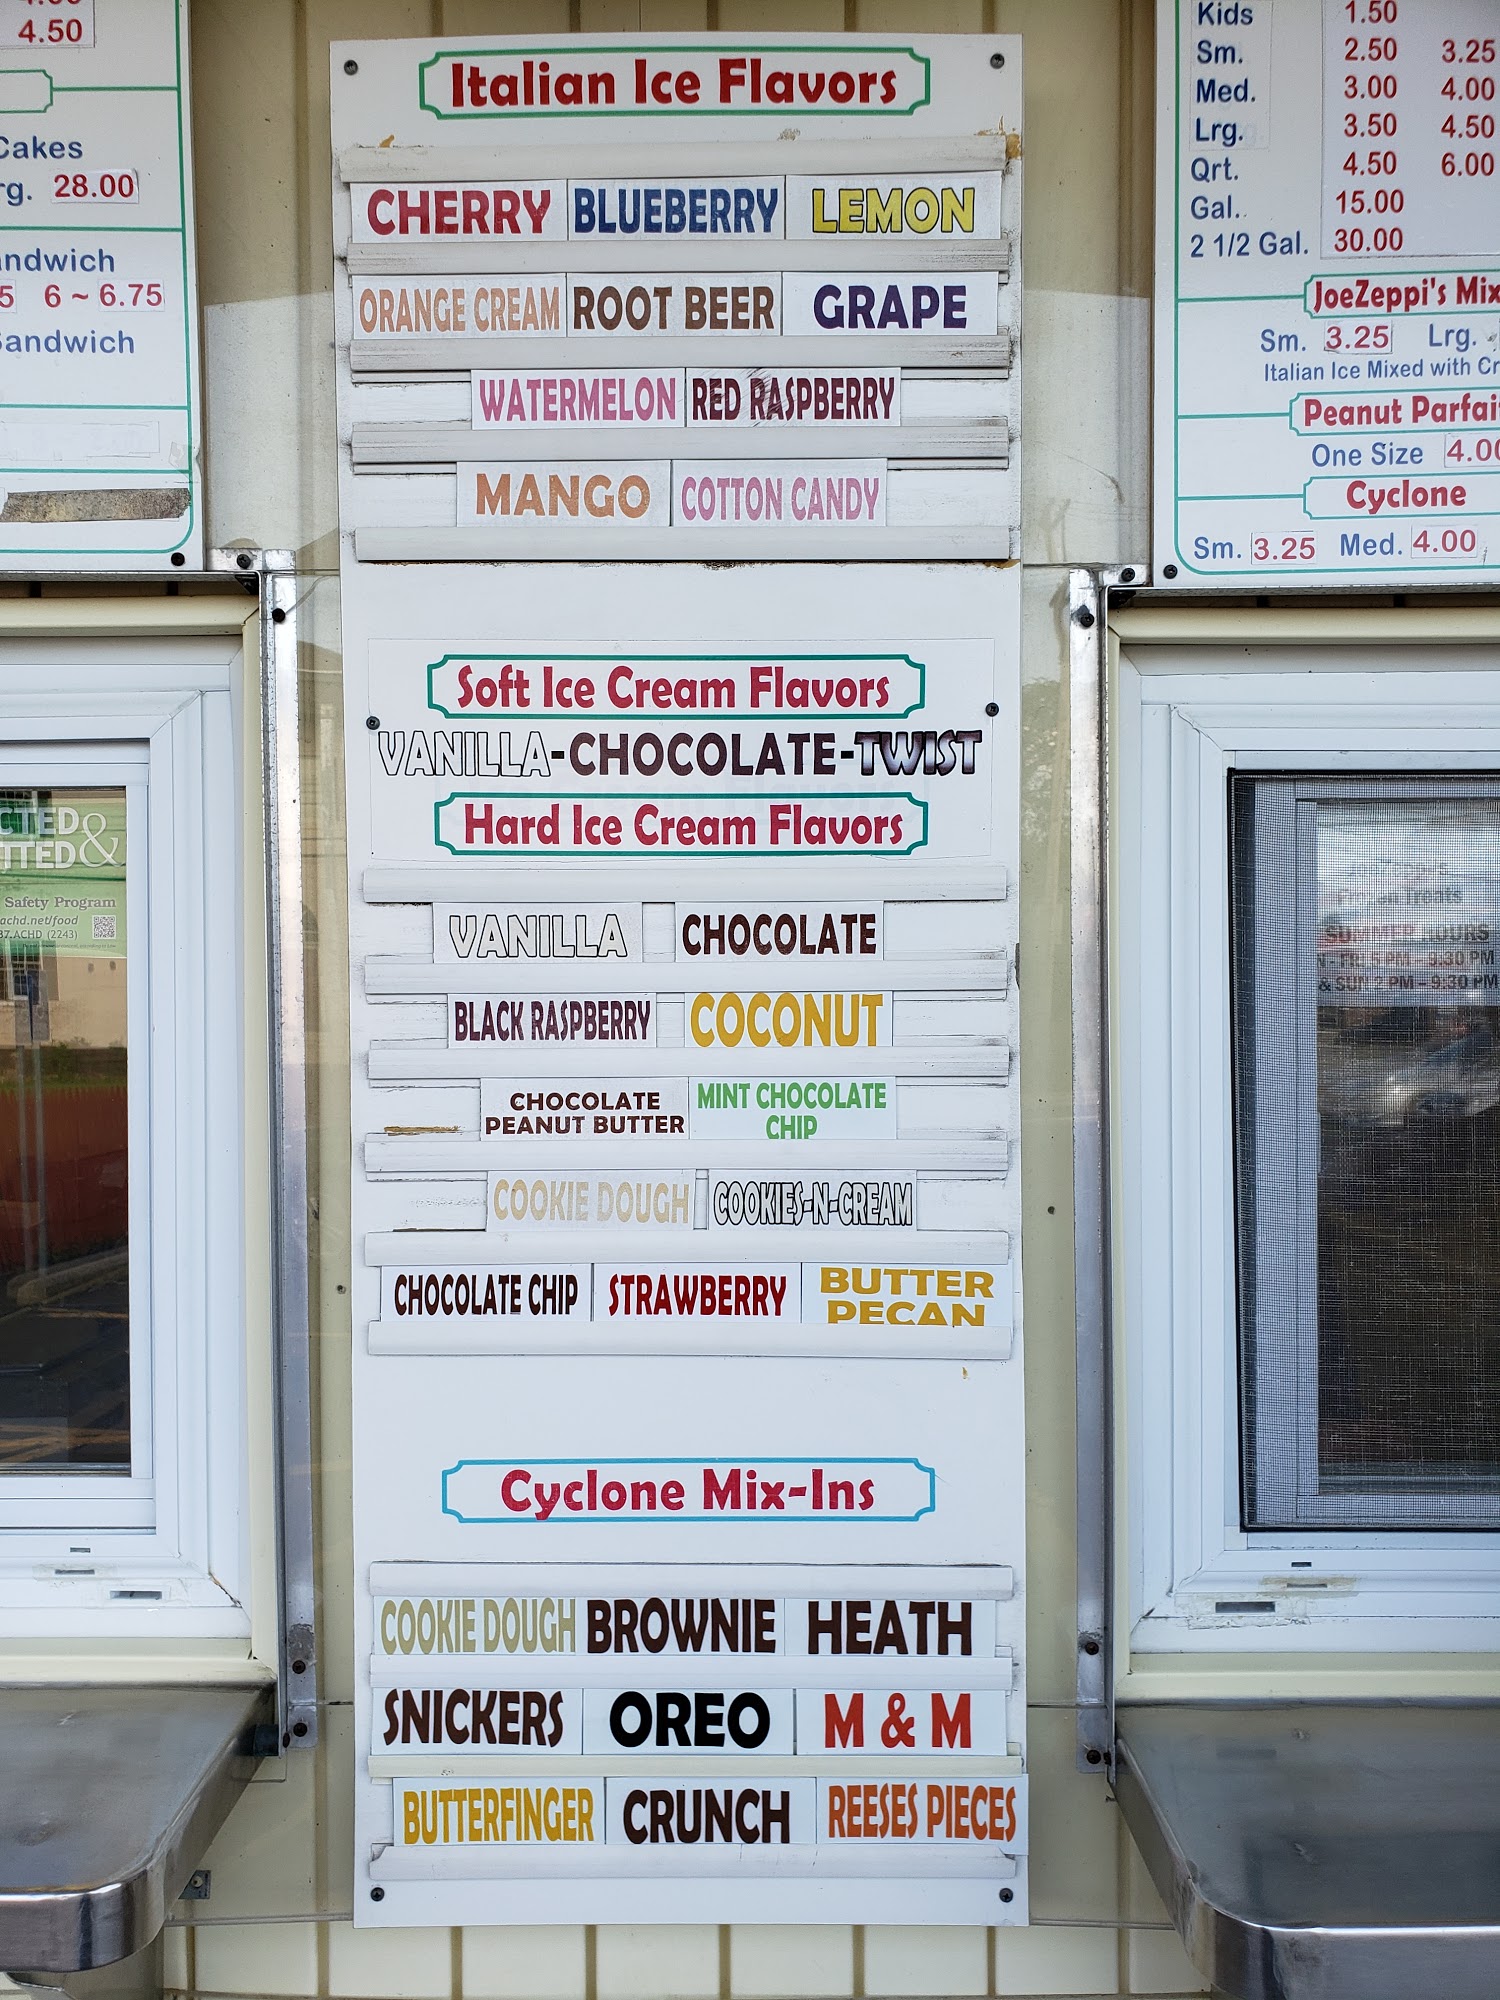 4.50
Cakes
28.00
6 ~ 6.75
Italian Ice Flavors
CHERRY BLUEBERRY LEMON
ORANGE CREAM ROOT BEER GRAPE
WATERMELON RED RASPBERRY
MANGO COTTON CANDY
Soft Ice Cream Flavors
VANILLA-CHOCOLATE-TWIST
Hard Ice Cream Flavors
VANILLA CHOCOLATE
BLACK RASPBERRY COCONUT
CHOCOLATE PEANUT BUTTER
MINT CHOCOLATE CHIP
COOKIE DOUGH COOKIES-N-CREAM
CHOCOLATE CHIP STRAWBERRY BUTTER PECAN
Cyclone Mix-Ins
COOKIE DOUGH BROWNIE HEATH
SNICKERS OREO M & M
BUTTERFINGER CRUNCH REESES PIECES
Kids 1.50
Sm. 2.50 3.25
Med. 3.00 4.00
Lrg. 3.50 4.50
Qrt. 4.50 6.00
Gal. 15.00
2 1/2 Gal. 30.00
JoeZeppi's Mix
Sm. 3.25 Lrg.
Italian Ice Mixed with
Peanut
One Size 4.00
Cyclone
Sm. 3.25 Med. 4.00
&
Safety Program
achd.net/food
ACHD (2243)
Frozen Treats
SUMMER HOURS
FRI 5 PM - 9:30 PM
& SUN 2 PM - 9:30 PM